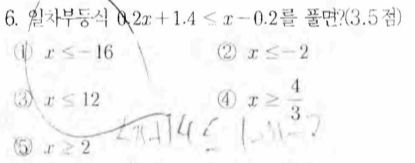 6. 일차부등식 0.2x+1.4≤x-0.2를 풀면?(3.5점)
① x≤-16 ② x≤-2
③ x≤12 ④ x≥4/3
⑤ x≥2